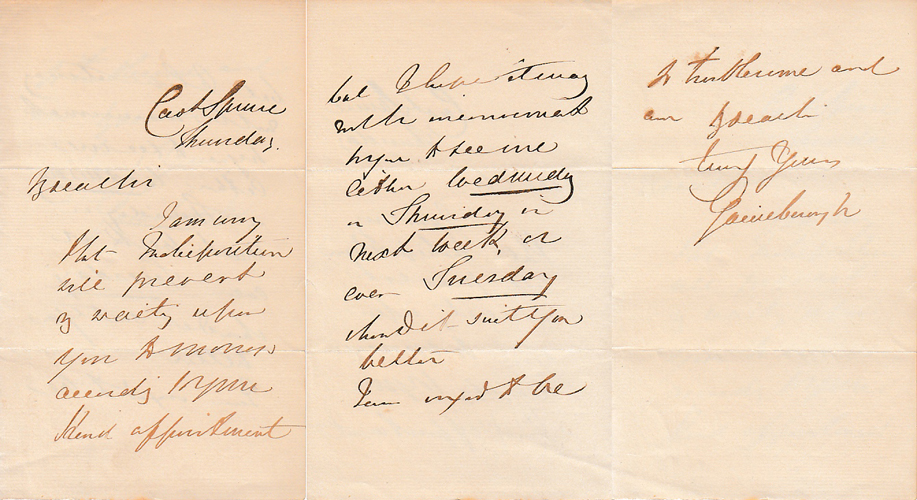 Thursday.
My dear Sir
I am very
that Indisposition
will prevent
my waiting upon
you
according to your
kind appointment
but I hope it may
not be inconvenient
to you to see me
either Wednesday
or Thursday in
next week, or
even Tuesday
should it suit you
better
I am to be
and
am My dear Sir
truly Yours
Gainsborough